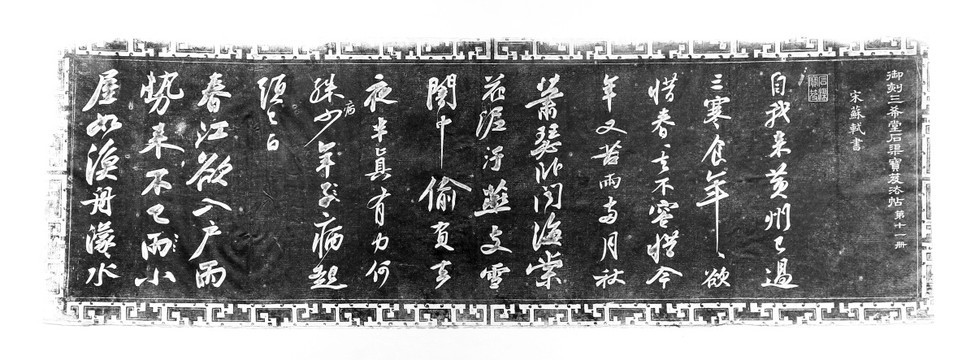 御刻三希堂石渠寶笈法帖 第十一册
宋蘇軾書
自我来黄州已過
三寒食年〻欲
惜春〻去不容惜今
年又苦雨兩月秋
蕭瑟卧聞海棠
花泥汙燕支雪
闇中偷負去
夜半真有力何
殊病少年子病起
頭已白
春江欲入户雨
勢来不已雨小
屋如漁舟濛〻水